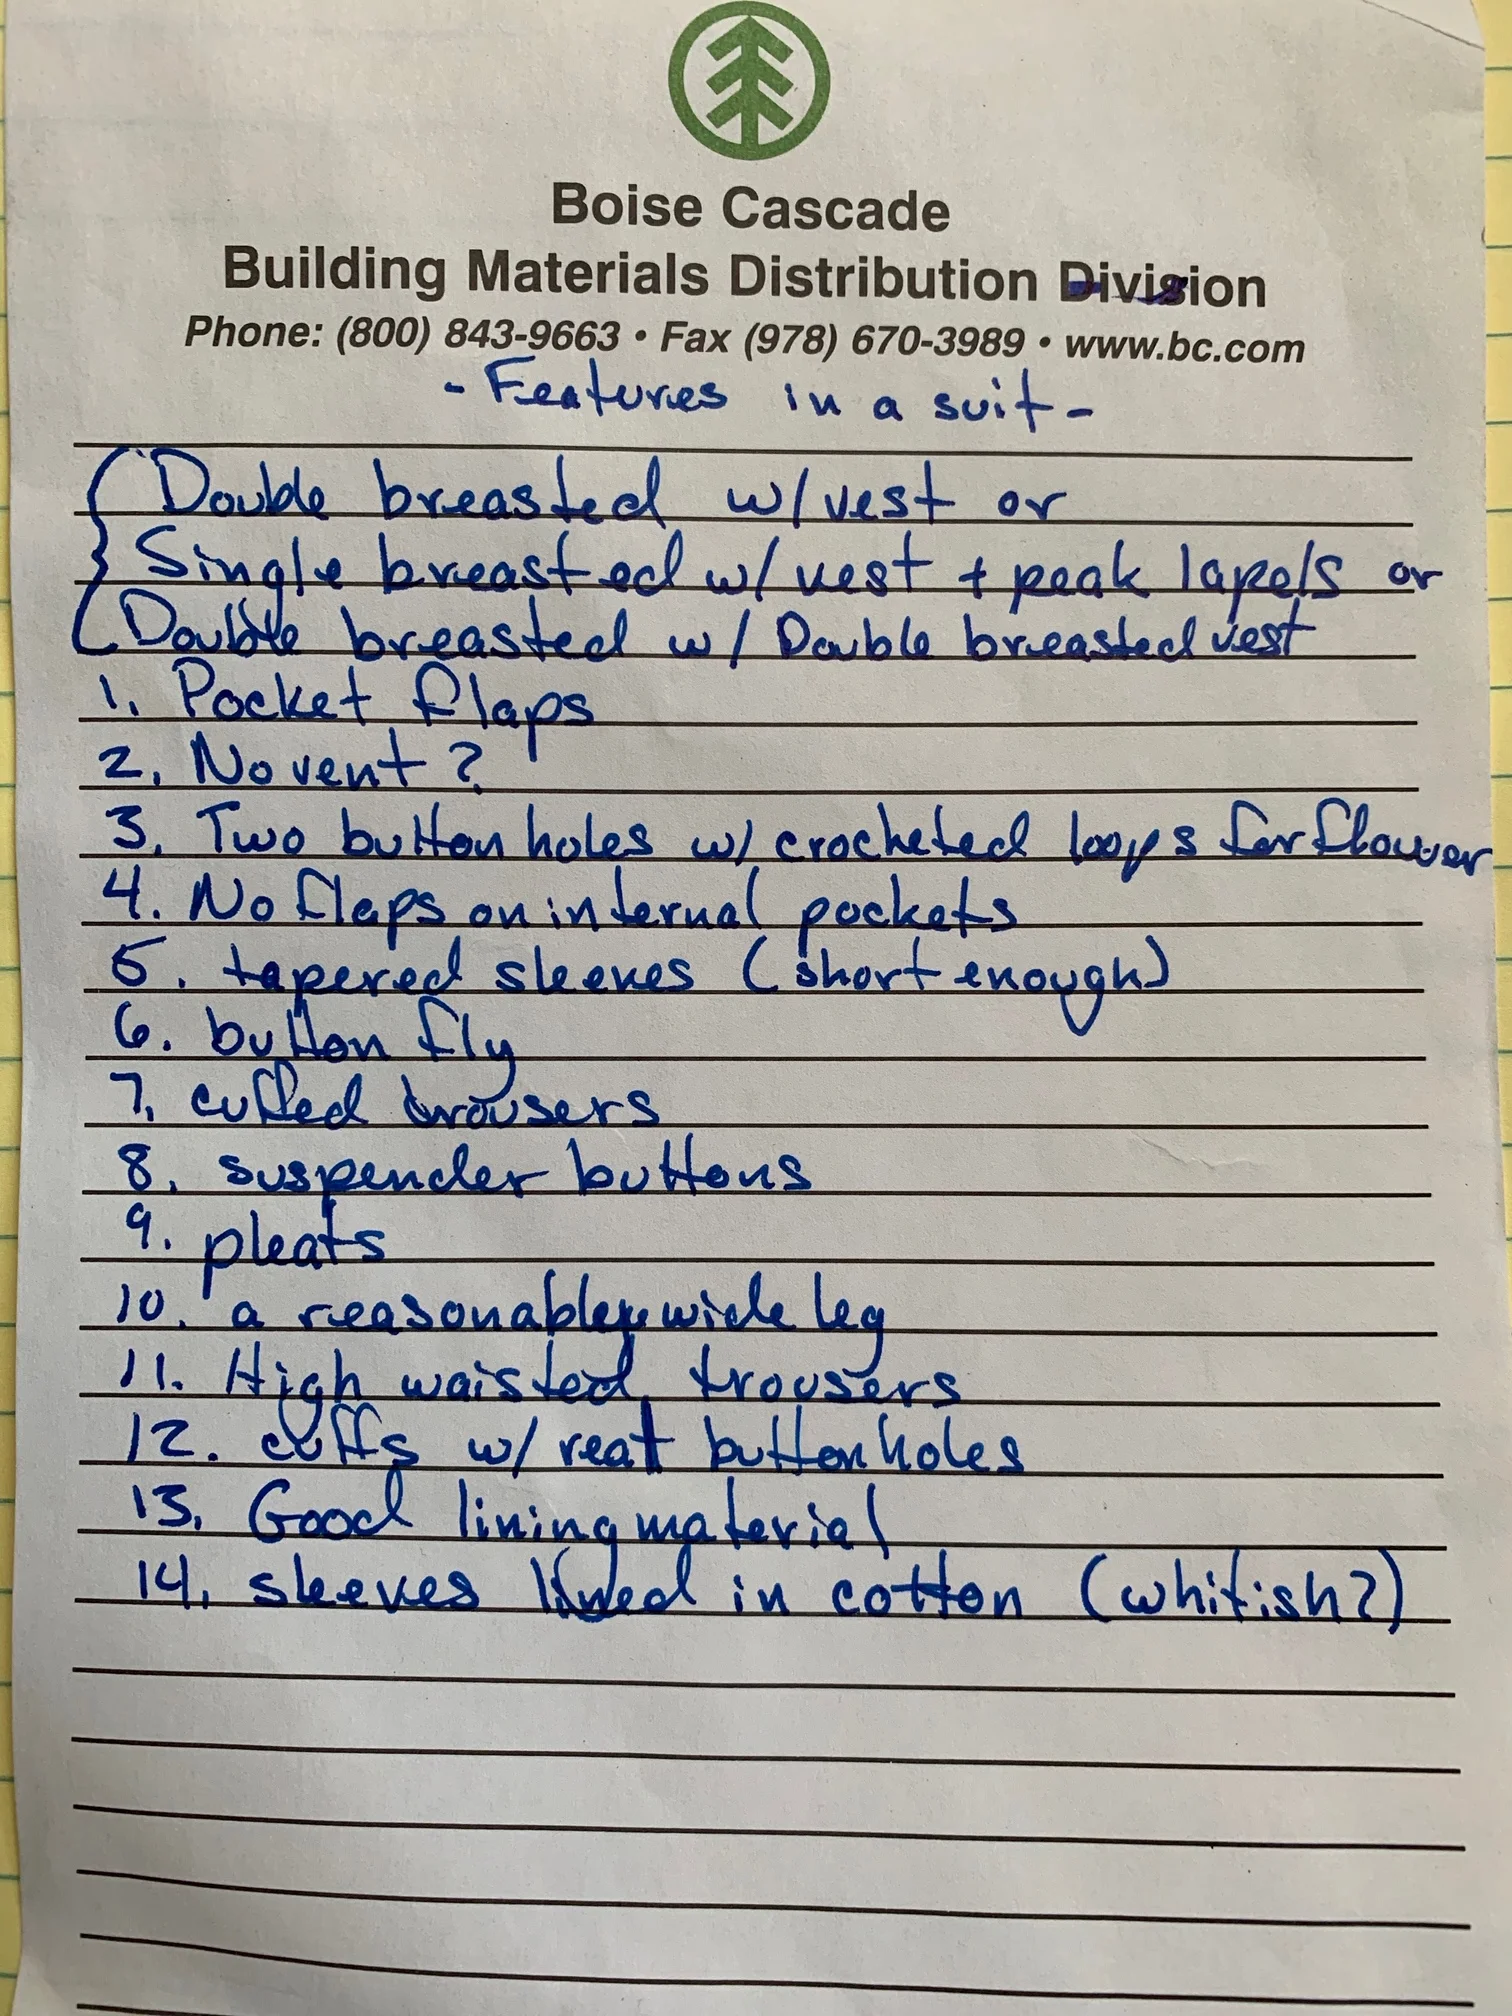 Boise Cascade
Building Materials Distribution Division
Phone: (800) 843-9663 • Fax (978) 670-3989 • www.bc.com
- Features in a suit -
Double breasted w/vest or
Single breasted w/ vest + peak lapels or
Double breasted w/ Double breasted vest
1. Pocket flaps
2. No vent?
3. Two button holes w/ crocheted loops for flower
4. No flaps on internal pockets
5. tapered sleeves (short enough)
6. button fly
7. cuffed trousers
8. suspender buttons
9. pleats
10. a reasonabley wide leg
11. High waisted trousers
12. cuffs w/ real buttonholes
13. Good lining material
14. sleeves lined in cotton (whitish?)